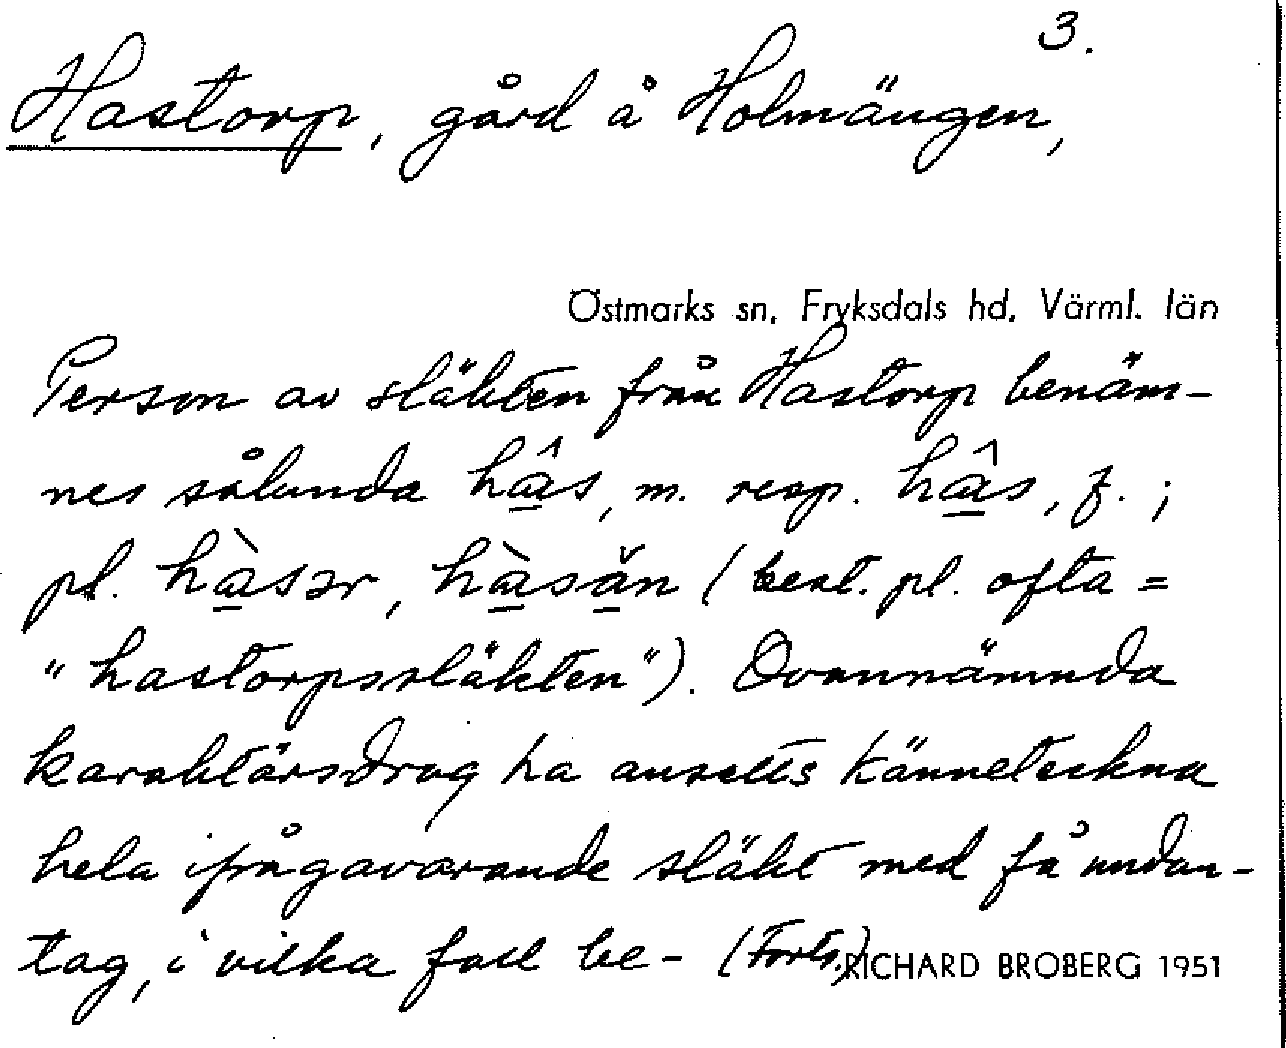 3.
Hastorp, gård å Holmängen,
Östmarks sn, Fryksdals hd, Värml. län
Person av släkten från Hastorp benäm-
nes sålunda hâ̱s, m. resp. hâ̱s, f. ;
pl. hà̱sər, hà̱sǎ̱n (best. pl. ofta =
"hastorpssläkten"). Ovannämnda
karaktärsdrag ha ansetts känneteckna
hela ifrågavarande släkt med få undan-
tag, i vilka fall be- (Forts.)
RICHARD BROBERG 1951